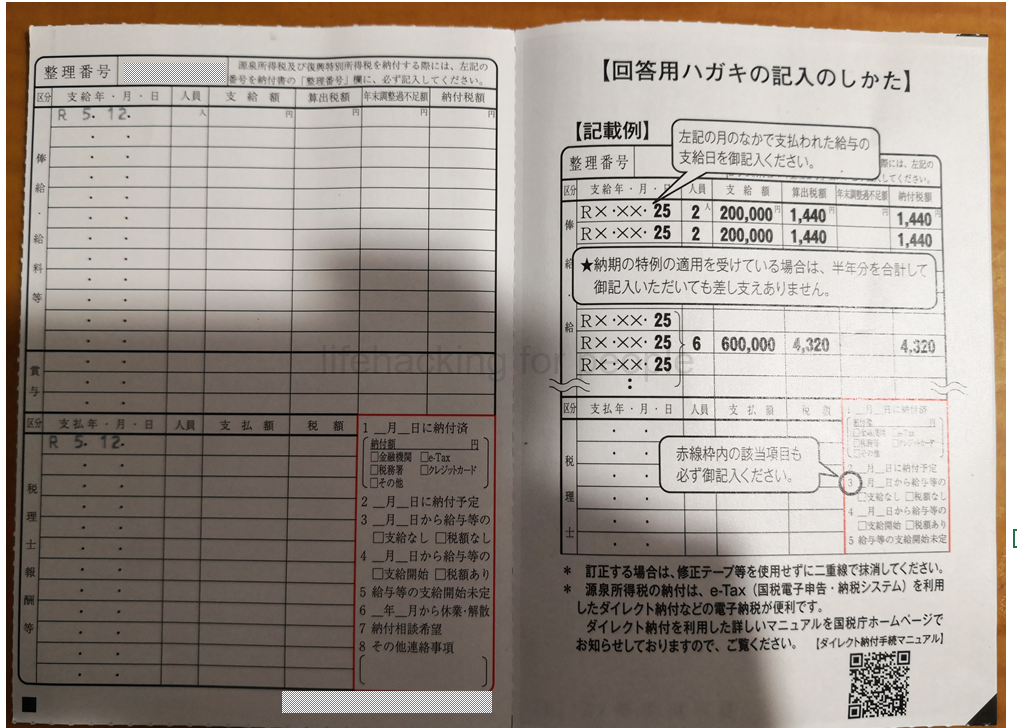 整理番号
源泉所得税及び復興特別所得税を納付する際には、左記の
番号を納付書の「整理番号」欄に、必ず記入してください。
区分 支給年・月・日 人員 支給額 算出税額 年末調整過不足額 納付税額
R 5. 12. 人 円 円 円 円
俸給・給料等
賞与
区分 支払年・月・日 人員 支払額 税額
R 5. 12.
税理士報酬等
1 __月__日に納付済
納付額 円
□金融機関 □e-Tax
□税務署 □クレジットカード
□その他
2 __月__日に納付予定
3 __月__日から給与等の
□支給なし □税額なし
4 __月__日から給与等の
□支給開始 □税額あり
5 給与等の支給開始未定
6 __年__月から休業・解散
7 納付相談希望
8 その他連絡事項
【回答用ハガキの記入のしかた】
【記載例】
左記の月のなかで支払われた給与の
支給日を御記入ください。
整理番号
際には、左記の
してください。
区分 支給年・月・日 人員 支給額 算出税額 年末調整過不足額 納付税額
R×・××・25 2人 200,000円 1,440円 円 1,440円
R×・××・25 2 200,000 1,440 1,440
俸給・給
★納期の特例の適用を受けている場合は、半年分を合計して
御記入いただいても差し支えありません。
R×・××・25
R×・××・25 6 600,000 4,320 4,320
R×・××・25
:
lifehacking for people
区分 支払年・月・日 人員 支払額 税額
税理士
赤線枠内の該当項目も
必ず御記入ください。
1 __月__日に納付済
納付額 円
□金融機関 □e-Tax
□税務署 □クレジットカード
□その他
2 __月__日に納付予定
3 __月__日から給与等の
□支給なし □税額なし
4 __月__日から給与等の
□支給開始 □税額あり
5 給与等の支給開始未定
* 訂正する場合は、修正テープ等を使用せずに二重線で抹消してください。
* 源泉所得税の納付は、e-Tax(国税電子申告・納税システム)を利用
したダイレクト納付などの電子納税が便利です。
ダイレクト納付を利用した詳しいマニュアルを国税庁ホームページで
お知らせしておりますので、ご覧ください。 【ダイレクト納付手続マニュアル】